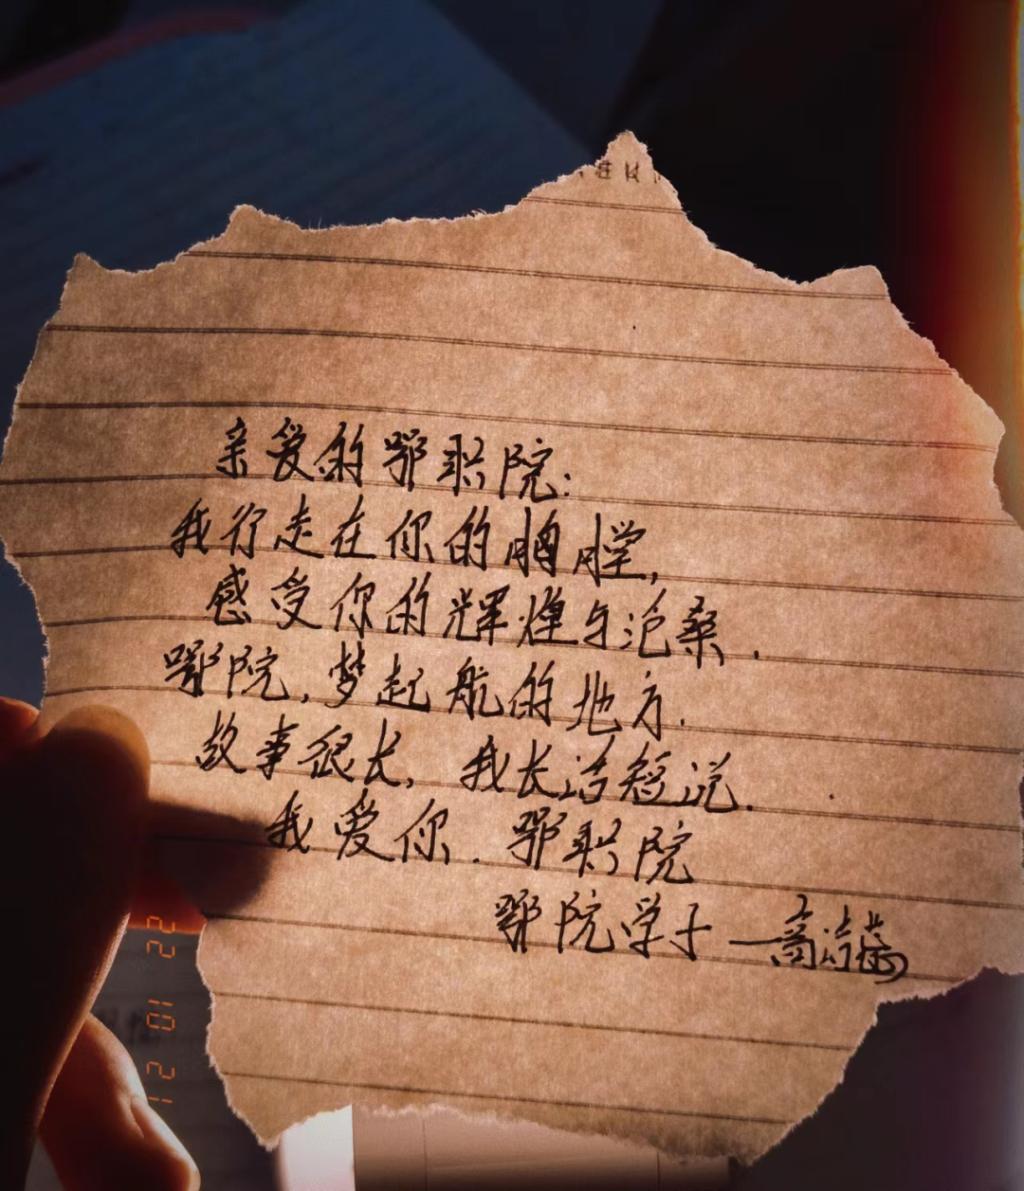 亲爱的鄂职院:
我行走在你的胸膛,
感受你的辉煌与沧桑.
鄂院,梦起航的地方.
故事很长,我长话短说.
我爱你.鄂职院
鄂院学子—高
22 10 21